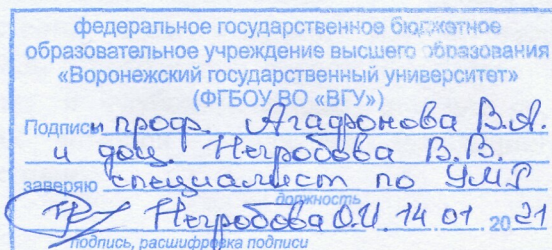 федеральное государственное бюджетное
образовательное учреждение высшего образования
«Воронежский государственный университет»
(ФГБОУ ВО «ВГУ»)
Подписи проф. Агафонова В.А.
и доц. Негробова В.В.
заверяю специалист по УМР
должность
Негробова О.И. 14 01 2021
подпись, расшифровка подписи